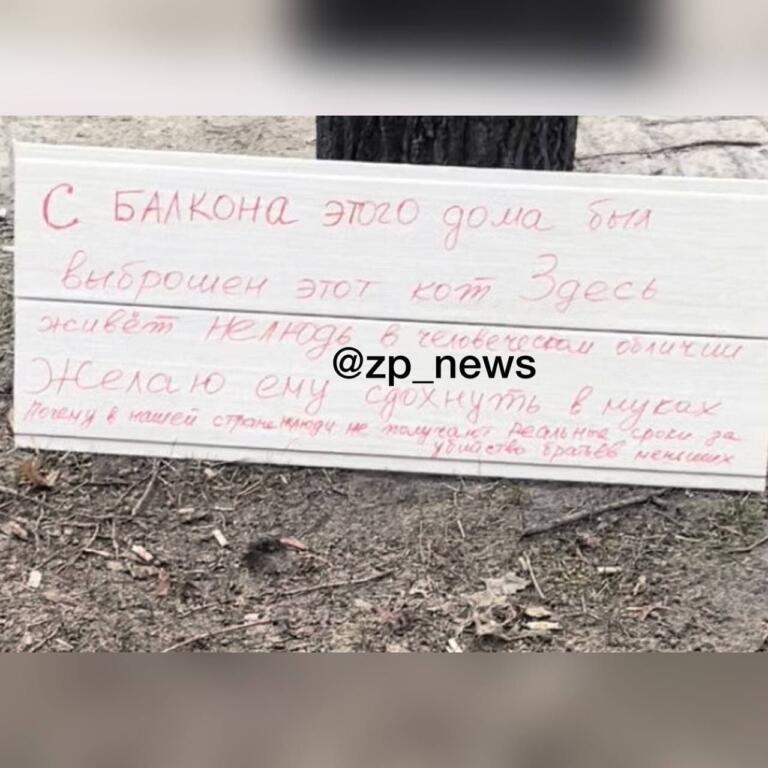 С БАЛКОНА этого дома был
выброшен этот кот Здесь
живёт Нелюдь в человеческом обличии
@zp_news
Желаю ему сдохнуть в муках
Почему в нашей стране люди не получают реальные сроки за
убийство братьев меньших